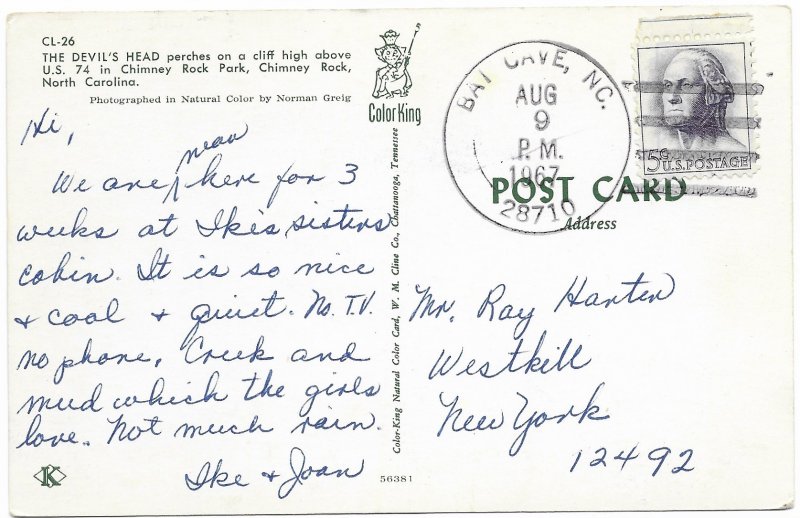 CL-26
THE DEVIL'S HEAD perches on a cliff high above
U.S. 74 in Chimney Rock Park, Chimney Rock,
North Carolina.
Photographed in Natural Color by Norman Greig
Color King
Hi,
near
We are here for 3
weeks at Ike's sisters
cabin. It is so nice
& cool & quiet. No T.V.
no phone, Creek and
mud which the girls
love. Not much rain.
Ike & Joan
K
Color-King Natural Color Card, W. M. Cline Co., Chattanooga, Tennessee
56381
BAT CAVE, NC.
AUG
9
P.M.
1967
28710
5¢ U.S. POSTAGE
POST CARD
Address
Mr. Ray Hanten
Westkill
New York
12492